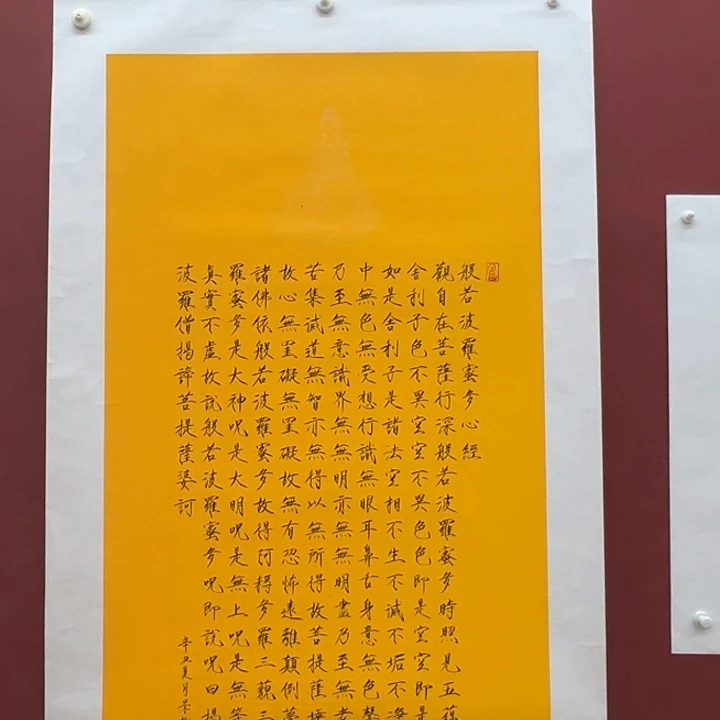 般若波羅蜜多心經
觀自在菩薩行深般若波羅蜜多時照見五蘊
舍利子色不異空空不異色色即是空空即是
如是舍利子是諸法空相不生不滅不垢不淨
中無色無受想行識無眼耳鼻舌身意無色聲
乃至無意識界無無明亦無無明盡乃至無老
苦集滅道無智亦無得以無所得故菩提薩埵
故心無罣礙無罣礙故無有恐怖遠離顛倒夢
諸佛依般若波羅蜜多故得阿耨多羅三藐三
羅蜜多是大神呪是大明呪是無上呪是無等
真實不虛故說般若波羅蜜多呪即說呪曰揭
波羅僧揭諦菩提薩婆訶
辛丑夏月